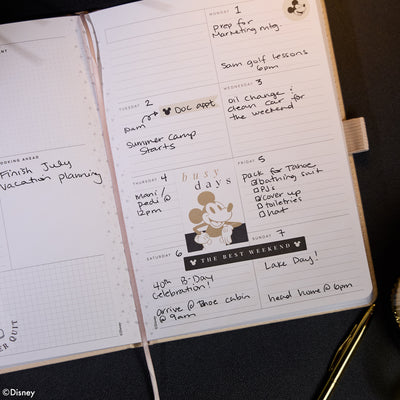 LOOKING AHEAD
Finish July
Vacation planning
MONDAY 1
prep for
Marketing mtg.
Sam golf lessons
6pm
TUESDAY 2
Doc appt
Summer camp
Starts
WEDNESDAY 3
oil change &
clean car for
the weekend
THURSDAY 4
Mani/
pedi @
12pm
busy
days
FRIDAY 5
pack for Tahoe
bathing suit
PJs
cover up
toiletries
hat
SATURDAY 6
THE BEST WEEKEND
40th B-Day
Celebration!
arrive @ Tahoe cabin
@ 9am
SUNDAY 7
Lake Day!
head home @ 6pm
©Disney
©Disney